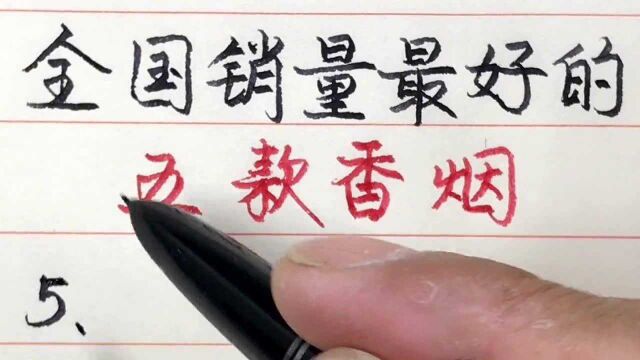 全国销量最好的
五款香烟
5、